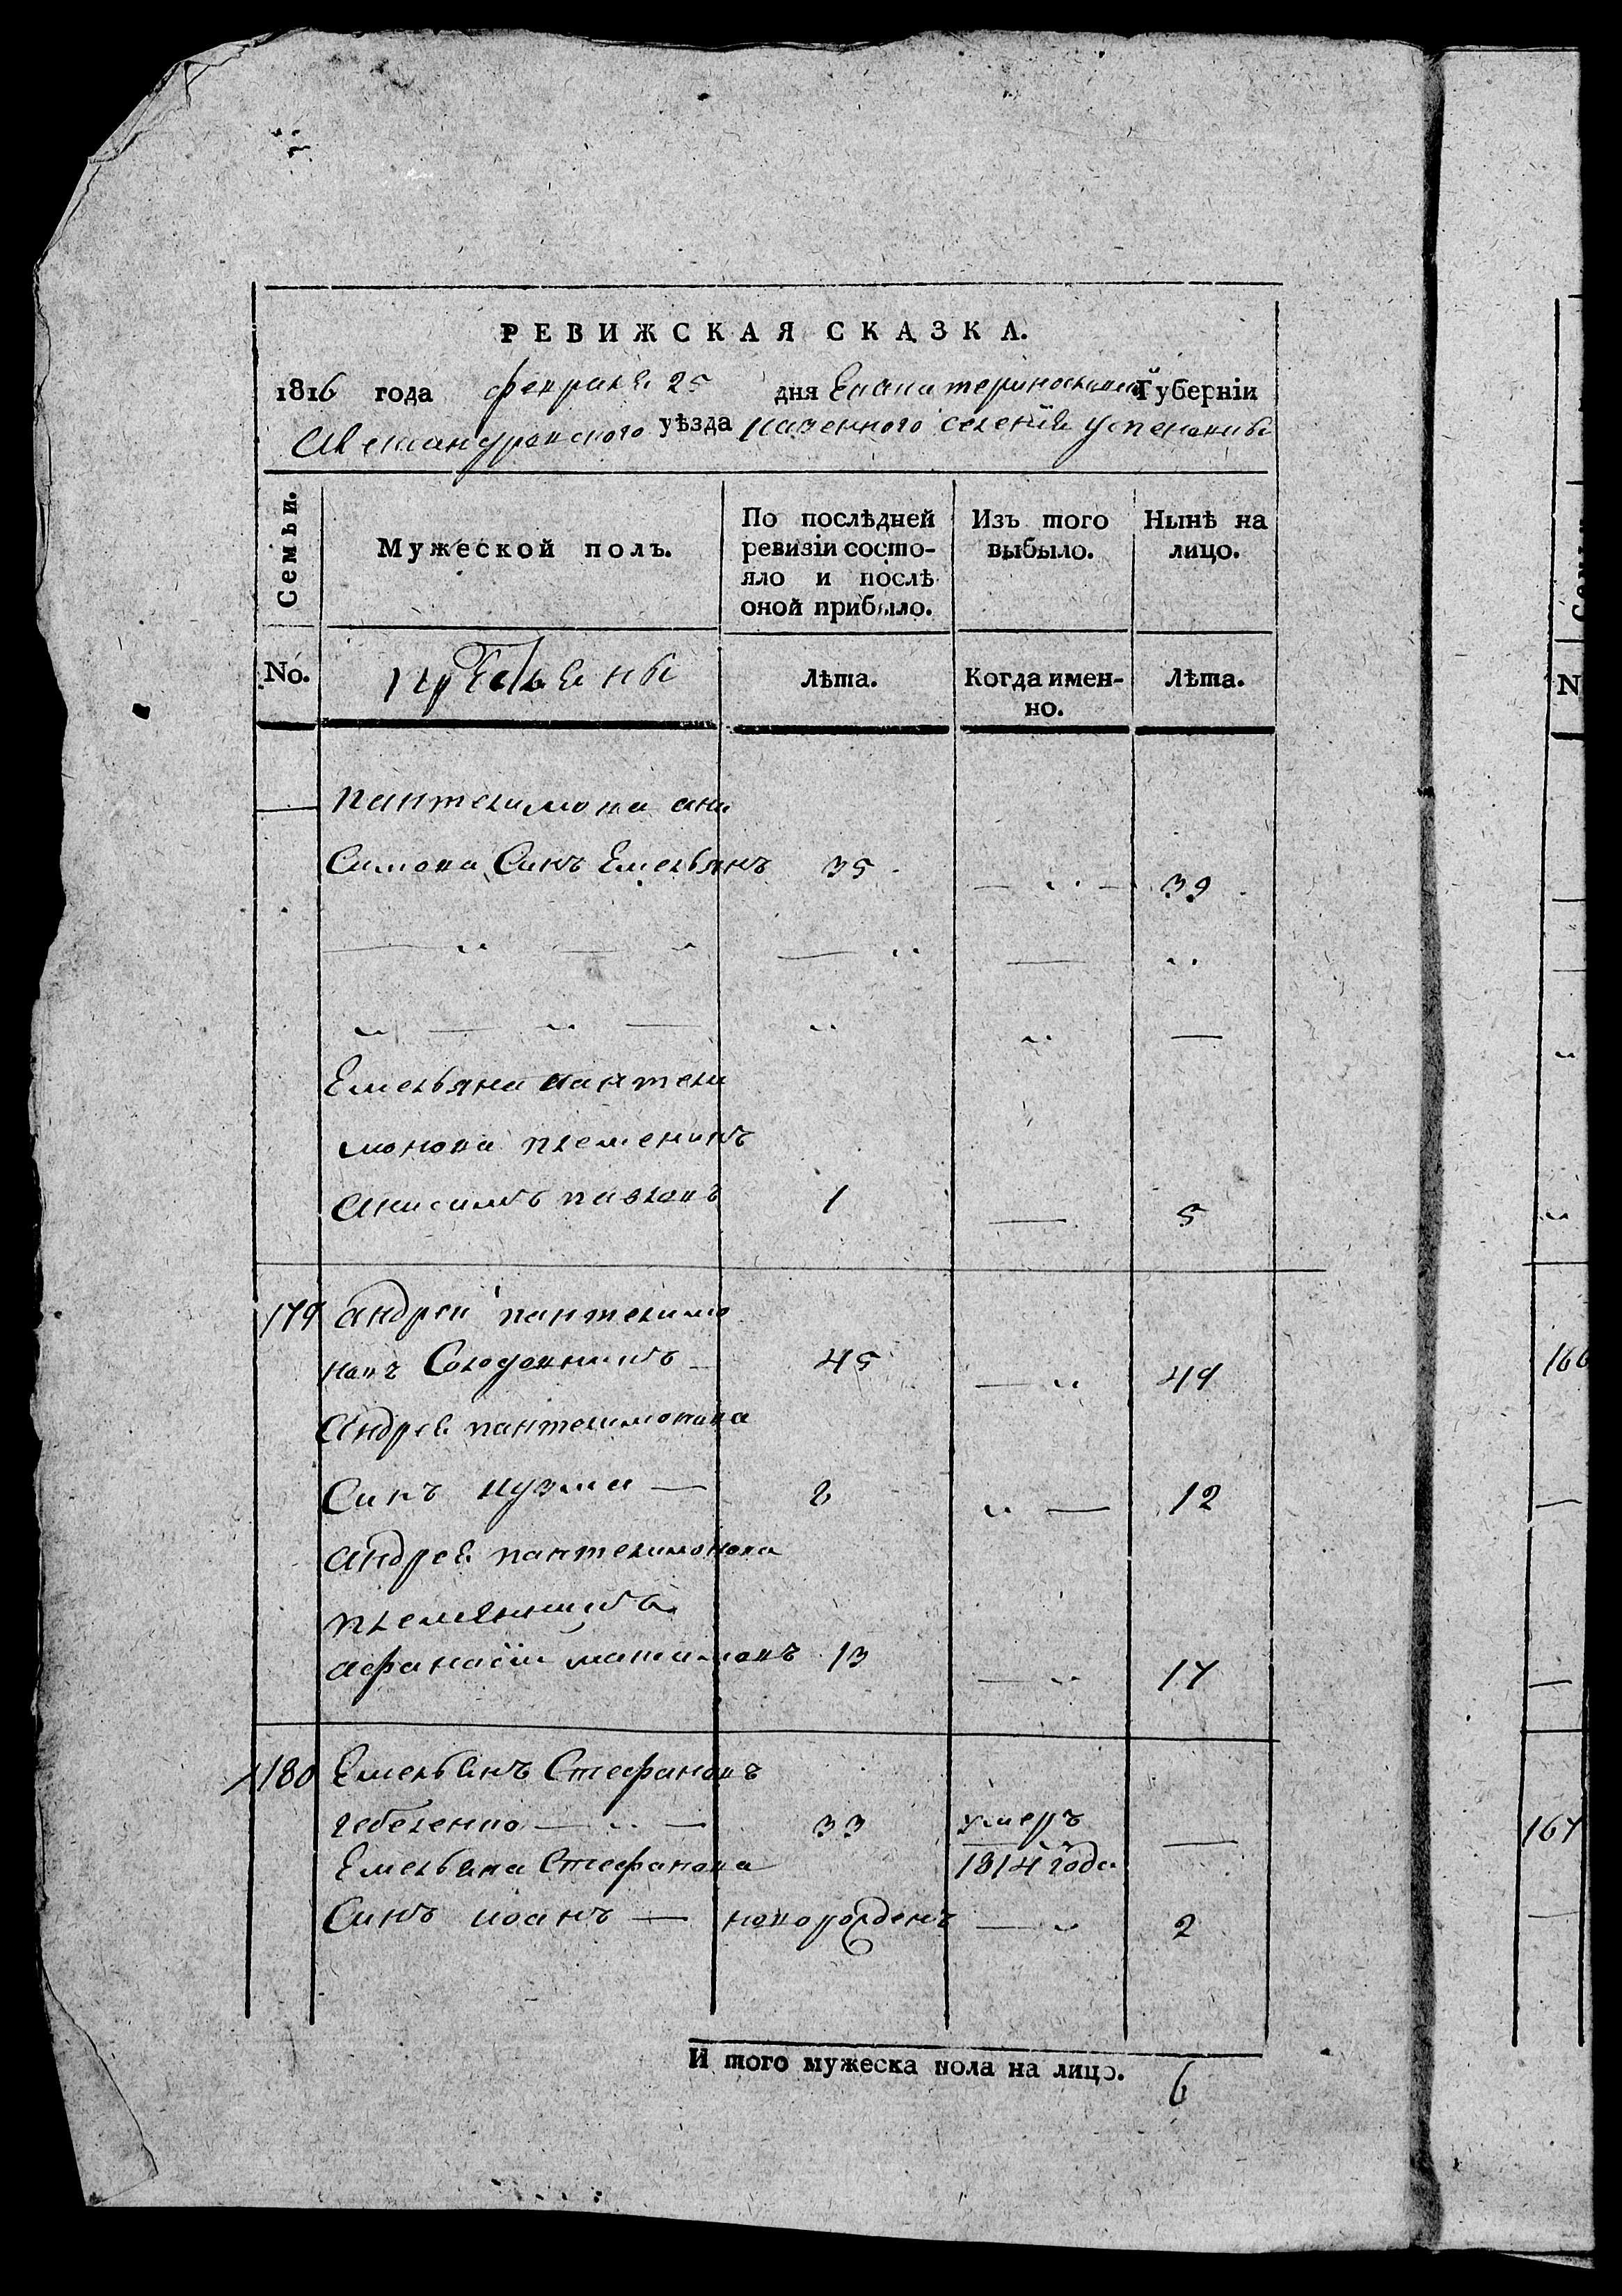 РЕВИЖСКАЯ СКАЗКА.
1816 года февраля 25 дня Екатеринославской Губерніи
Александровского уѣзда казенного селенія Успеновки
Семьи.
Мужеской полъ.
По послѣдней ревизіи состояло и послѣ оной прибыло.
Изъ того выбыло.
Нынѣ на лицо.
No.
Лѣта.
Когда именно.
Лѣта.
Пантелимона ани
симова Синъ Емельянъ 35 39
Емельяна пантели
монова племеникъ
анисимъ павловъ 1 5
179 андрей пантелимо
новъ Солодовникъ 45 49
андрея пантелимонова
Синъ кузма 8 12
андрея пантелимонова
племянникъ
афанасій 13 17
180 Емельянъ Стефановъ
чебененко 33 умеръ
Емельяна Стефанова 1814 года
Синъ иоанъ новорожденъ 2
И того мужеска пола на лицо. 6
N
166
167